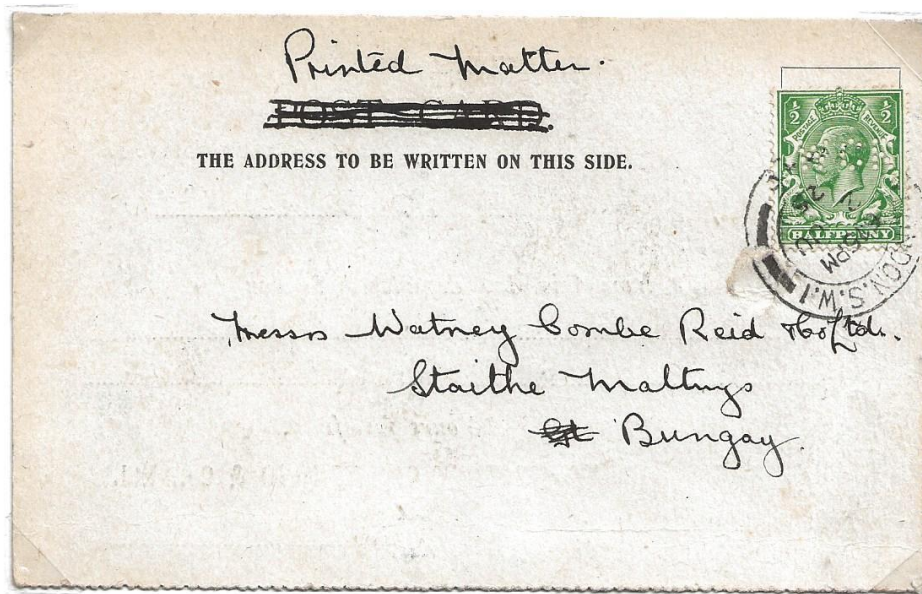 Printed Matter.
POST CARD.
THE ADDRESS TO BE WRITTEN ON THIS SIDE.
½ ½
POSTAGE REVENUE
HALFPENNY
PM
25
LONDON.S.W.1.
Messrs Watney Combe Reid & Co Ltd.
Staithe Maltings
St Bungay.